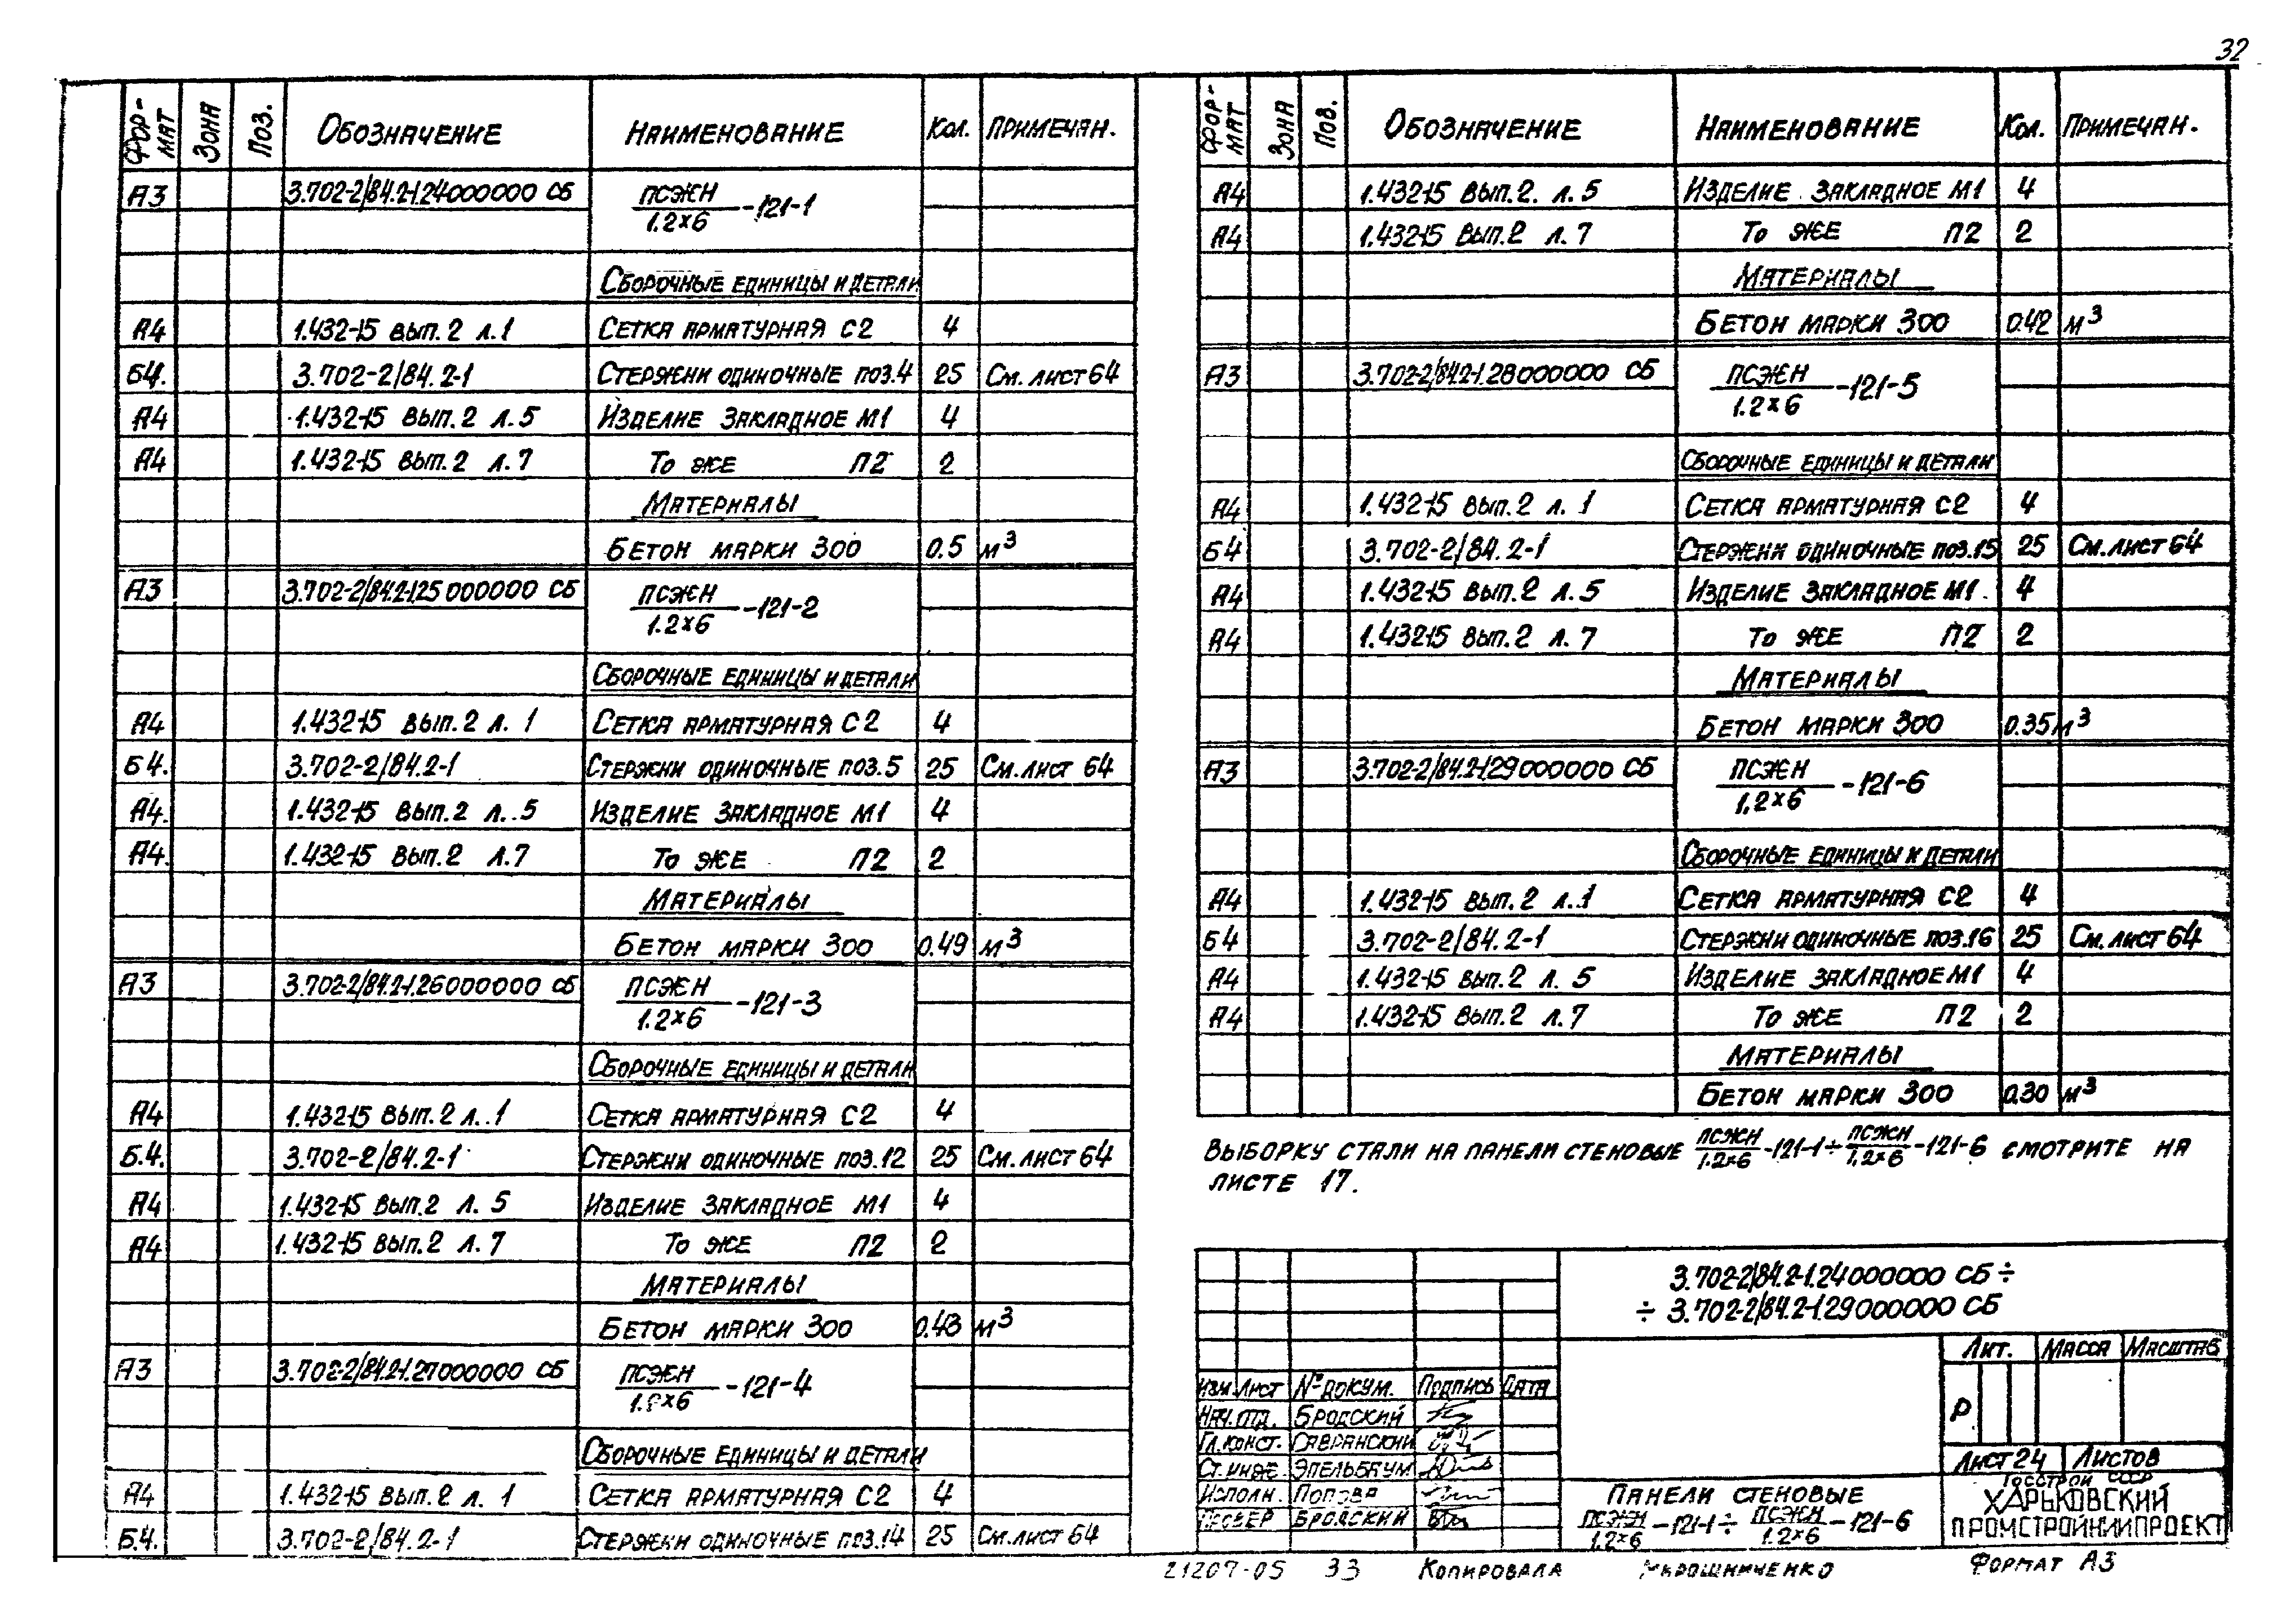 32
ФОР-МАТ ЗОНА ПОЗ. ОБОЗНАЧЕНИЕ НАИМЕНОВАНИЕ КОЛ. ПРИМЕЧАН.
А3 3.702-2/84.2-1.24000000 СБ ПСЖН/1.2×6 -121-1
СБОРОЧНЫЕ ЕДИНИЦЫ И ДЕТАЛИ
А4 1.432-15 ВЫП. 2 Л. 1 СЕТКА АРМАТУРНАЯ С2 4
Б4. 3.702-2/84. 2-1 СТЕРЖНИ ОДИНОЧНЫЕ ПОЗ. 4 25 СМ. ЛИСТ 64
А4 1.432-15 ВЫП. 2 Л. 5 ИЗДЕЛИЕ ЗАКЛАДНОЕ М1 4
А4 1.432-15 ВЫП. 2 Л. 7 ТО ЖЕ П2 2
МАТЕРИАЛЫ
БЕТОН МАРКИ 300 0.5 М³
А3 3.702-2/84.2-1.25000000 СБ ПСЖН/1.2×6 -121-2
СБОРОЧНЫЕ ЕДИНИЦЫ И ДЕТАЛИ
А4 1.432-15 ВЫП. 2 Л. 1 СЕТКА АРМАТУРНАЯ С2 4
Б4. 3.702-2/84.2-1 СТЕРЖНИ ОДИНОЧНЫЕ ПОЗ. 5 25 СМ. ЛИСТ 64
А4. 1.432-15 ВЫП. 2 Л. 5 ИЗДЕЛИЕ ЗАКЛАДНОЕ М1 4
А4. 1.432-15 ВЫП. 2 Л. 7 ТО ЖЕ П2 2
МАТЕРИАЛЫ
БЕТОН МАРКИ 300 0.49 М³
А3 3.702-2/84.2-1.26000000 СБ ПСЖН/1.2×6 -121-3
СБОРОЧНЫЕ ЕДИНИЦЫ И ДЕТАЛИ
А4 1.432-15 ВЫП. 2 Л. 1 СЕТКА АРМАТУРНАЯ С2 4
Б.4. 3.702-2/84.2-1 СТЕРЖНИ ОДИНОЧНЫЕ ПОЗ. 12 25 СМ. ЛИСТ 64
А4 1.432-15 ВЫП. 2 Л. 5 ИЗДЕЛИЕ ЗАКЛАДНОЕ М1 4
А4 1.432-15 ВЫП. 2 Л. 7 ТО ЖЕ П2 2
МАТЕРИАЛЫ
БЕТОН МАРКИ 300 0.43 М³
А3 3.702-2/84.2-1.27000000 СБ ПСЖН/1.2×6 -121-4
СБОРОЧНЫЕ ЕДИНИЦЫ И ДЕТАЛИ
А4 1.432-15 ВЫП. 2 Л. 1 СЕТКА АРМАТУРНАЯ С2 4
Б.4. 3.702-2/84.2-1 СТЕРЖНИ ОДИНОЧНЫЕ ПОЗ. 14 25 СМ. ЛИСТ 64
ФОР-МАТ ЗОНА ПОЗ. ОБОЗНАЧЕНИЕ НАИМЕНОВАНИЕ КОЛ. ПРИМЕЧАН.
А4 1.432-15 ВЫП. 2. Л. 5 ИЗДЕЛИЕ ЗАКЛАДНОЕ М1 4
А4 1.432-15 ВЫП. 2 Л. 7 ТО ЖЕ П2 2
МАТЕРИАЛЫ
БЕТОН МАРКИ 300 0.42 М³
А3 3.702-2/84.2-1.28000000 СБ ПСЖН/1.2×6 -121-5
СБОРОЧНЫЕ ЕДИНИЦЫ И ДЕТАЛИ
А4 1.432-15 ВЫП. 2 Л. 1 СЕТКА АРМАТУРНАЯ С2 4
Б4 3.702-2/84. 2-1 СТЕРЖНИ ОДИНОЧНЫЕ ПОЗ. 15 25 СМ. ЛИСТ 64
А4 1.432-15 ВЫП. 2 Л. 5 ИЗДЕЛИЕ ЗАКЛАДНОЕ М1. 4
А4 1.432-15 ВЫП. 2 Л. 7 ТО ЖЕ П2 2
МАТЕРИАЛЫ
БЕТОН МАРКИ 300 0.35 М³
А3 3.702-2/84.2-1.29000000 СБ ПСЖН/1.2×6 -121-6
СБОРОЧНЫЕ ЕДИНИЦЫ И ДЕТАЛИ
А4 1.432-15 ВЫП. 2 Л. 1 СЕТКА АРМАТУРНАЯ С2 4
Б4 3.702-2/84. 2-1 СТЕРЖНИ ОДИНОЧНЫЕ ПОЗ. 16 25 СМ. ЛИСТ 64
А4 1.432-15 ВЫП. 2 Л. 5 ИЗДЕЛИЕ ЗАКЛАДНОЕ М1 4
А4 1.432-15 ВЫП. 2 Л. 7 ТО ЖЕ П2 2
МАТЕРИАЛЫ
БЕТОН МАРКИ 300 0.30 М³
ВЫБОРКУ СТАЛИ НА ПАНЕЛИ СТЕНОВЫЕ ПСЖН/1.2×6 -121-1 ÷ ПСЖН/1.2×6 -121-6 СМОТРИТЕ НА
ЛИСТЕ 17.
3.702-2/84.2-1.24000000 СБ ÷
÷ 3.702-2/84.2-1.29000000 СБ
ЛИТ. МАССА МАСШТАБ
Р
ЛИСТ 24 ЛИСТОВ
ИЗМ. ЛИСТ № ДОКУМ. ПОДПИСЬ ДАТА
НАЧ. ОТД. БРОДСКИЙ
ГЛ. КОНСТ. САВРАНСКИЙ
СТ. ИНЖ. ЭПЕЛЬБАУМ
ИСПОЛН. ПОПОВА
ПРОВЕР БРОДСКИЙ
ПАНЕЛИ СТЕНОВЫЕ
ПСЖН/1.2×6 -121-1 ÷ ПСЖН/1.2×6 -121-6
ГОССТРОЙ СССР
ХАРЬКОВСКИЙ
ПРОМСТРОЙНИИПРОЕКТ
21207-05 33 КОПИРОВАЛА МИРОШНИЧЕНКО ФОРМАТ А3